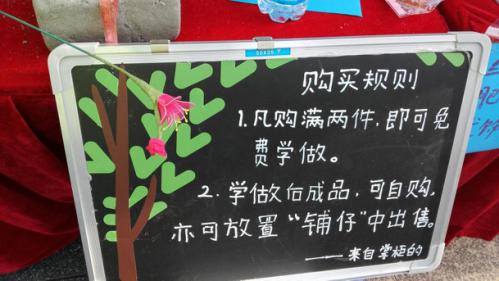 购买规则
1.凡购满两件,即可免
费学做。
2.学做后成品,可自购,
亦可放置“铺仔”中出售。
——来自掌柜的